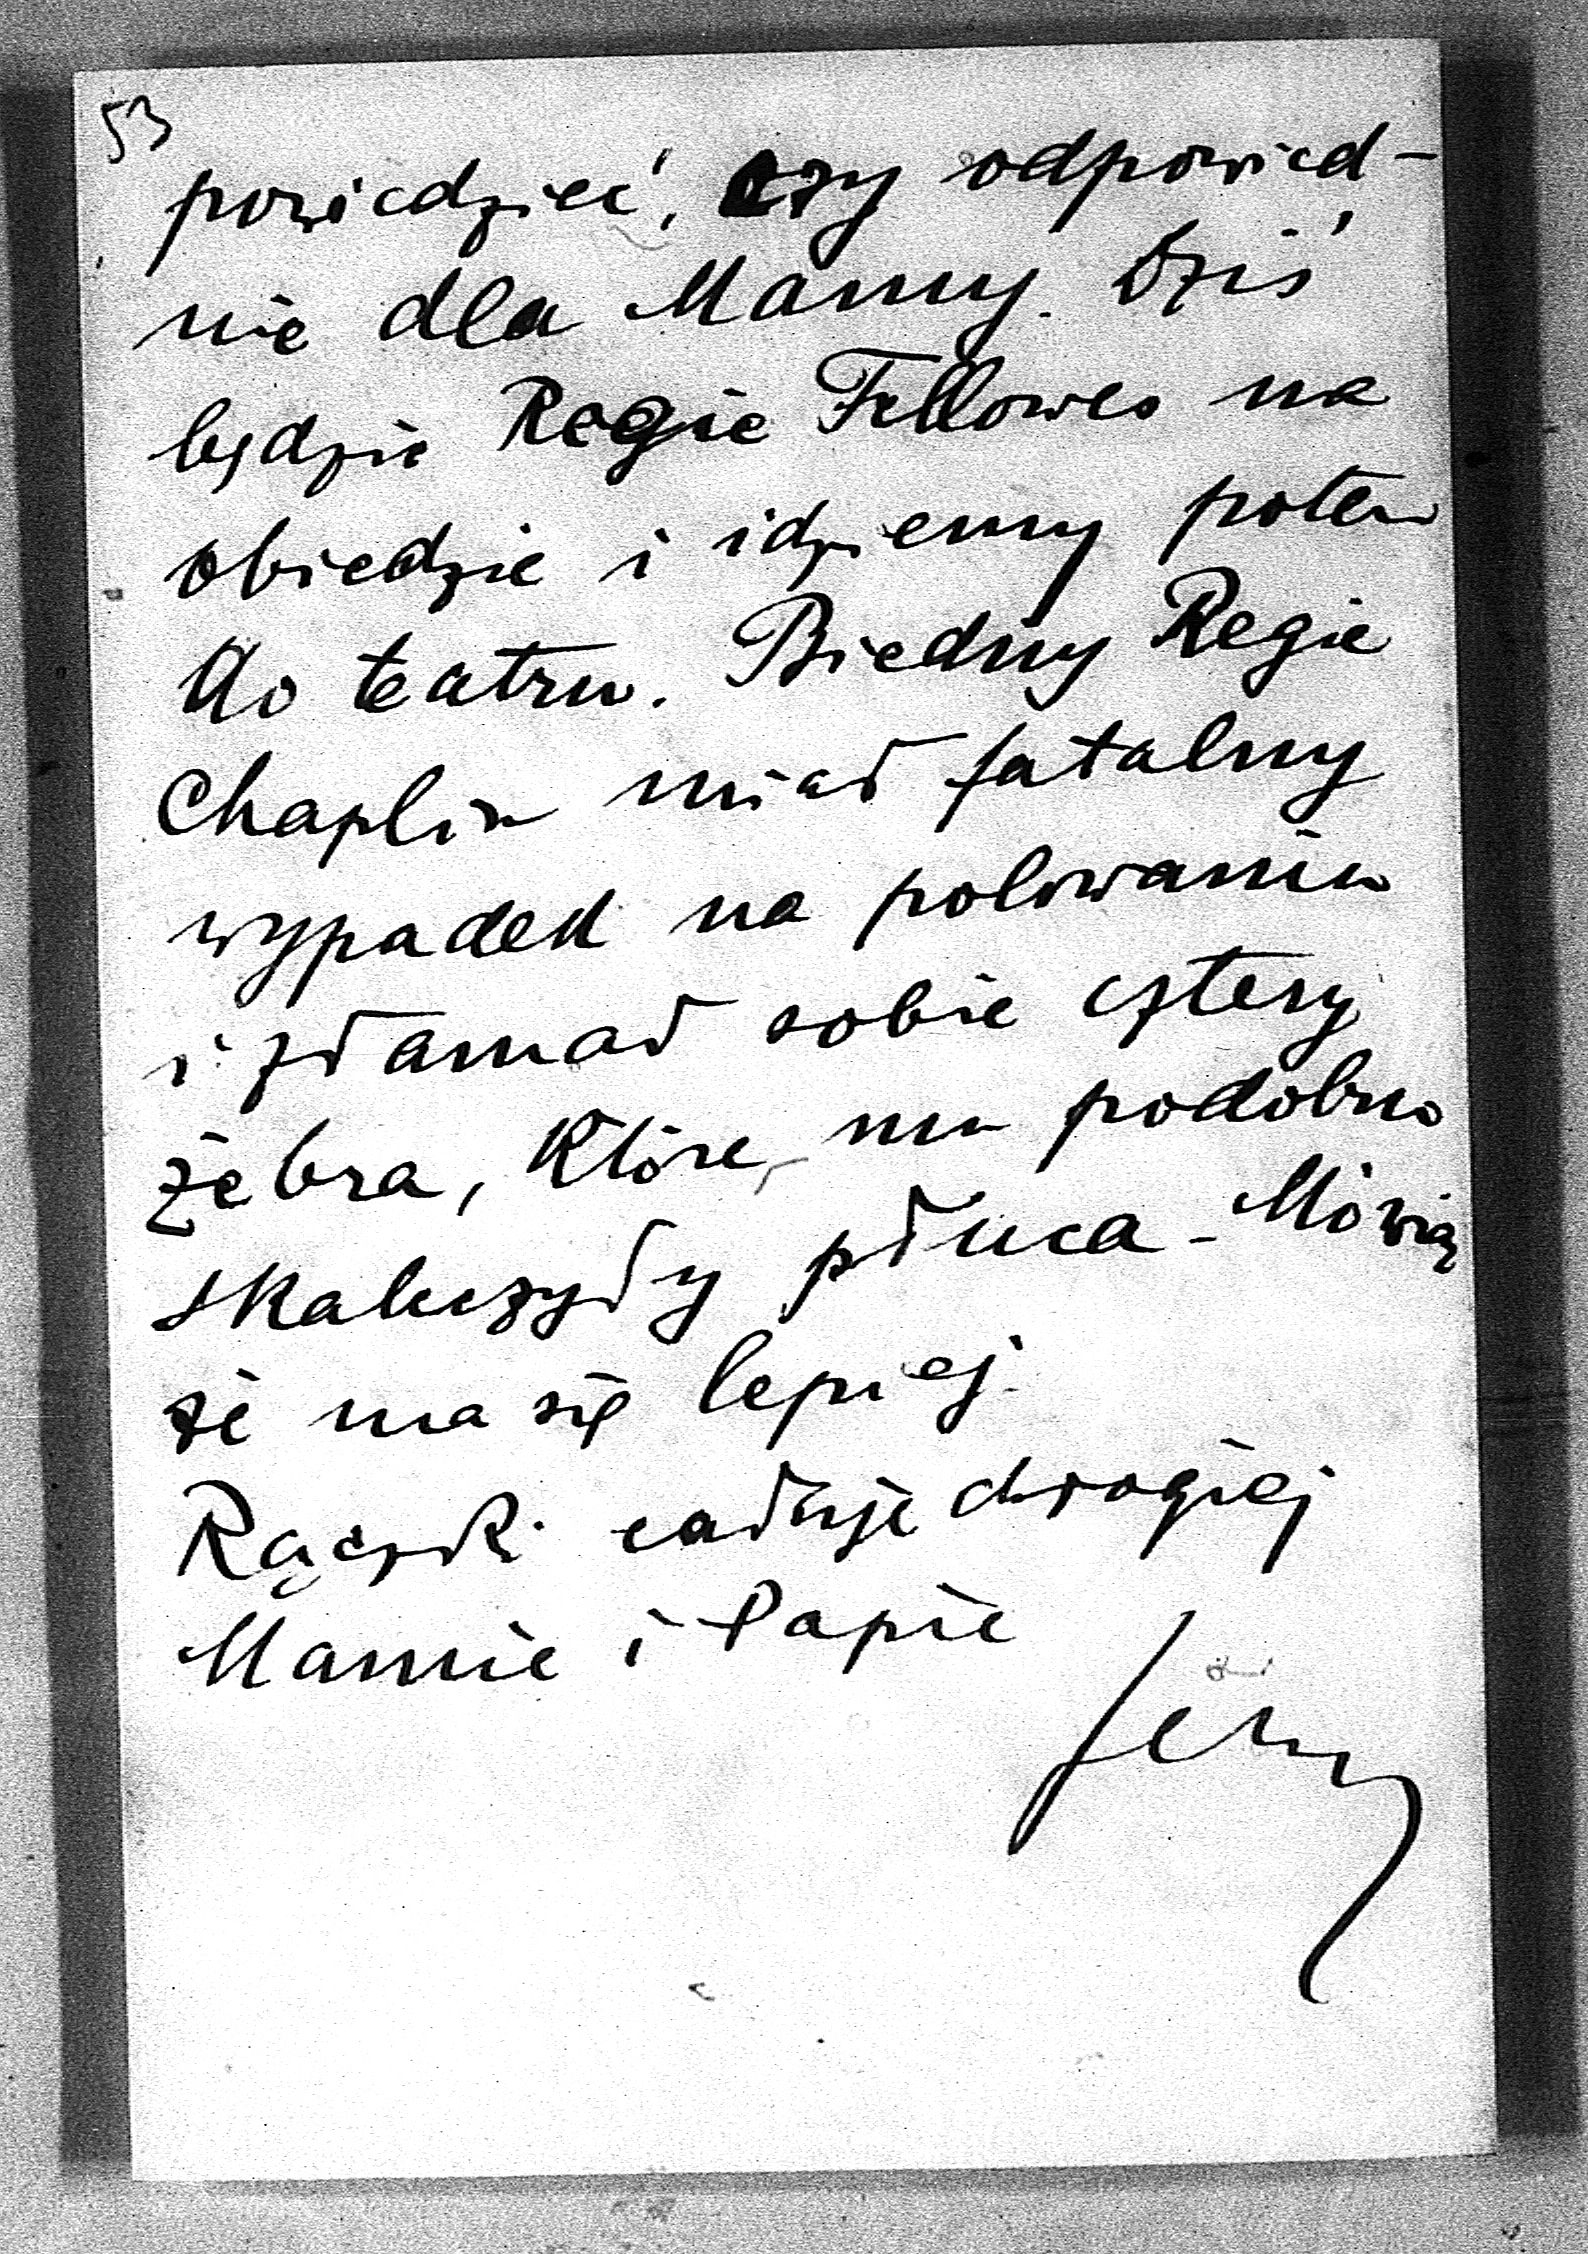 53
powiedzieć, czy odpowied-
nie dla Mamy. Dziś
będzie Regie Fellowes na
obiedzie i idziemy potem
do teatru. Biedny Regie
Chaplin miał fatalny
wypadek na polowaniu
i złamał sobie cztery
żebra, które mu podobno
skaleczyły płuca - Mówią
że ma się lepiej.
Rączki całuję drogiej
Mamie i Papie
Jerzy